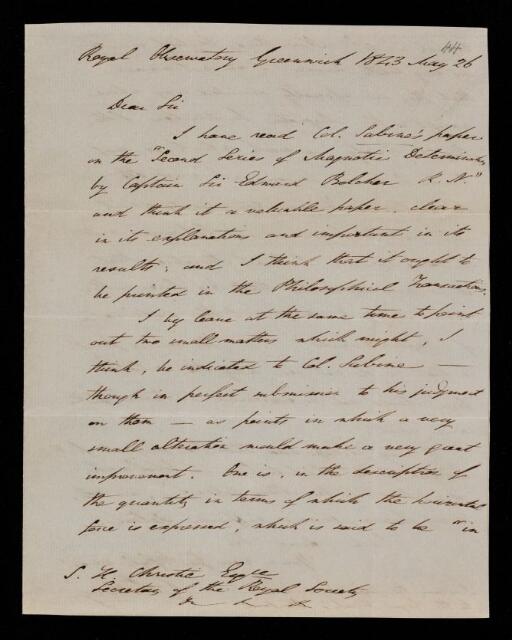 44
Royal Observatory Greenwich 1843 May 26
Dear Sir
I have read Col. Sabine's paper
on the "Second Series of Magnetic Determinations
by Captain Sir Edward Belcher R.N."
and think it a valuable paper, clear
in its explanations and important in its
results; and I think that it ought to
be printed in the Philosophical Transactions.
I beg leave at the same time to point
out two small matters which might, I
think, be indicated to Col. Sabine —
though in perfect submission to his judgment
on them — as points in which a very
small alteration would make a very great
improvement. One is, in the description of
the quantity in terms of which the horizontal
force is expressed, which is said to be "in
S. H. Christie Esqre
Secretary of the Royal Society